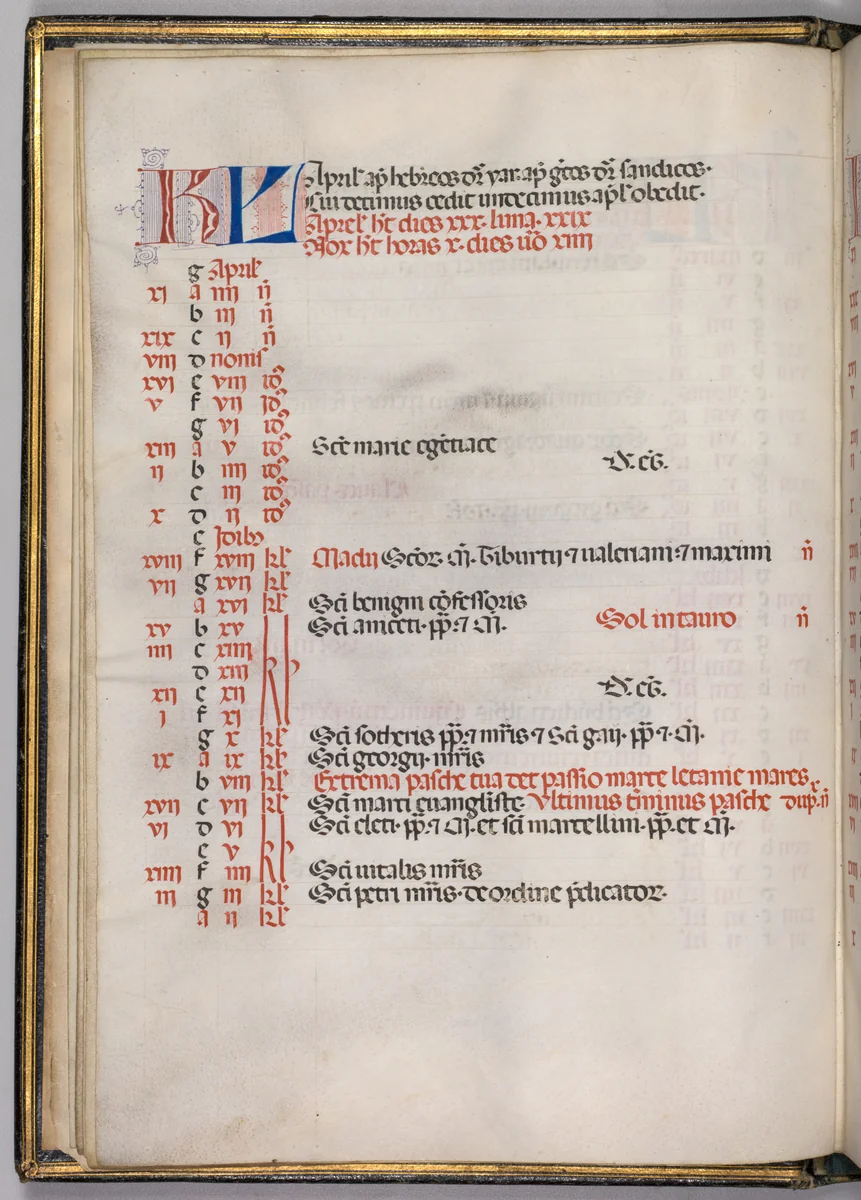 KL Aprilˀ ap̄ hebreos dr̄ yar. ap̄ gr̄cos dr̄ sandicos.
cedit undecimus ap̄lˀ obedit.
Aprelˀ ħt dies xxx. luna. xxix
Nox ħt horas x. dies ūo xiiii
g Aprilˀ
xi a iiii n̄
b iii n̄
xix c ii n̄
viii d nonis
xvi e viii id9
v f vii id9
g vi id9
xiii a v id9 Scē marie egētiace
ii b iiii id9 D. eḡ.
c iii id9
x d ii id9
e Idib9
xviii f xviii klˀ Madii Scōr. M̄. Tiburtii ⁊ ualeriani ⁊ maximi n̄
vii g xvii klˀ
a xvi klˀ Sci benigni cōfessoris
xv b xv kl Sci aniceti. pp̄. ⁊ M̄. Sol in tauro n̄
iiii c xiiii
d xiii
xii e xii D. eḡ.
i f xi
g x klˀ Sci sotheris pp̄. ⁊ mr̄is ⁊ Sci gaij. pp̄ ⁊. M̄.
ix a ix klˀ Sci georgij. mr̄is
b viii klˀ Extrema pasche tua det passio marce letanie maiores
xvii c vii klˀ Sci marci euangliste Vltimus t̄minus pasche dup. n̄
vi d vi kl Sci cleti. pp̄. ⁊ M̄. et sci marcellini. pp̄. et M̄.
e v
xiiii f iiii Sci uitalis mr̄is
iii g iii klˀ Sci petri mr̄is. de ordine p̄dicator.
a ii klˀ